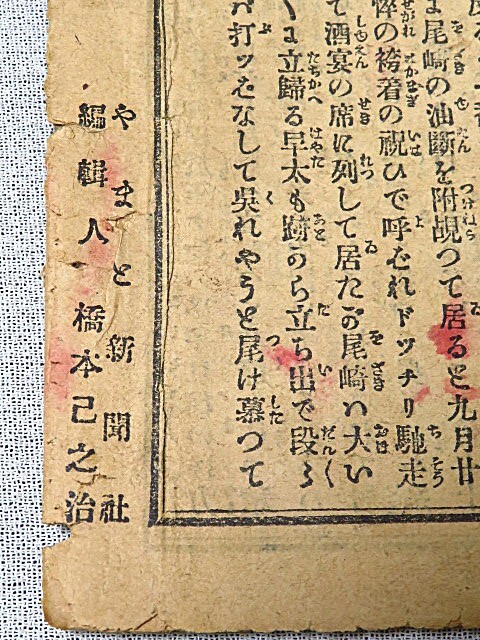 尾崎の油斷を附覘つて居ると九月廿
悴の袴着の祝ひで呼ばれドツチリ馳走
て酒宴の席に列して居たが尾崎ハ大い
立歸る早太も跡から立ち出で段々
打ツとなして呉れやうと尾け慕つて
やまと新聞社
編輯人 橋本己之治